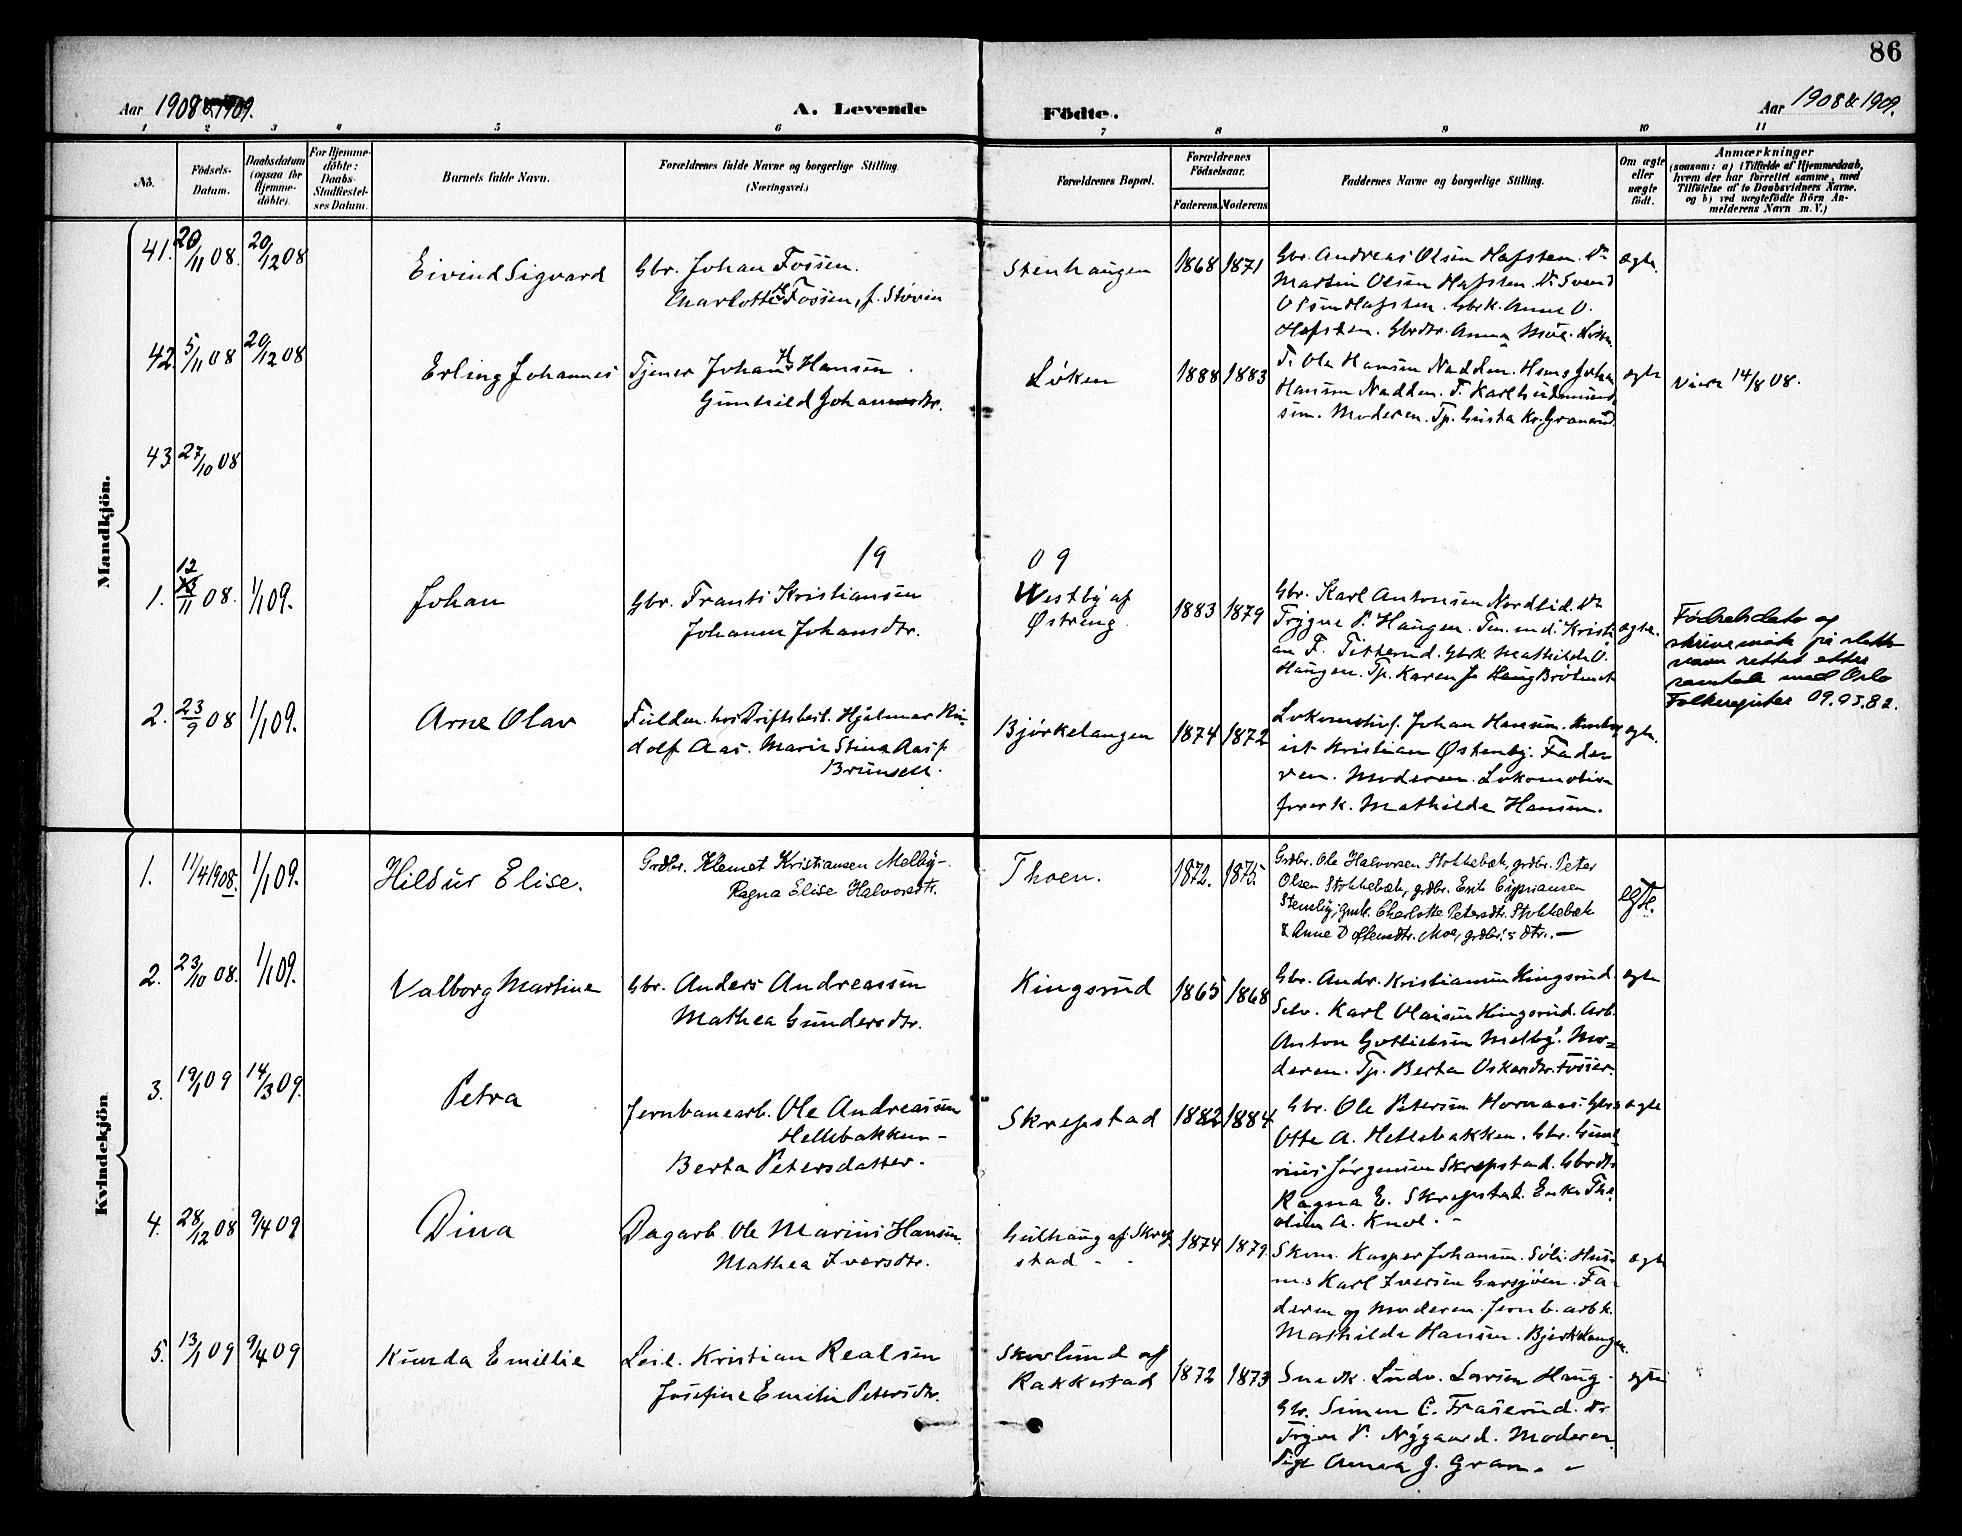 86
Aar 1908 & 1909.
A. Levende Födte.
Aar 1908 & 1909.
1 2 3 4 5 6 7 8 9 10 11
No.
Födsels-Datum.
Daabsdatum (ogsaa for Hjemme-döbte).
For Hjemme-döbte: Daabs-Stadfæstel-ses Datum.
Barnets fulde Navn.
Forældrenes fulde Navne og borgerlige Stilling. (Næringsvei.)
Forældrenes Bopæl.
Forældrenes Födselsaar.
Faderens. Moderens.
Faddernes Navne og borgerlige Stilling.
Om ægte eller uægte födt.
Anmærkninger
(saasom: a) i Tilfælde af Hjemmedaab,
hvem der har forrettet samme, med
Tilföielse af to Daabsvidners Navne.
og b) ved uægtefödte Börn An-
melderens Navn m. V.)
Mandkjön.
41. 20/11 08. 20/12 08
Eivind Sigvard
Gbr. Johan Fossen.
Charlotte H. Fossen, f. Støvin
Stenhaugen
1868 1871
Gbr. Andreas Olsen Hafsten. Do
Martin Olsen Hafsten. Do Svend
Olsen Hafsten. Gbrk. Anne O.
Hafsten. Gbrdtr. Anna Moe
ægte.
42. 5/11 08 20/12 08
Erling Johannes
Tjener Johan H. Hansen
Gunhild Johannesdtr.
Løken
1888 1883
T. Ole Hansen Nadden. Hans Johan
Hansen Nadden. T. Karl Gudmund
sen. Moderen. Tp. Gusta Kr. Granerud.
ægte
Viet 14/8 08.
43. 27/10 08
1909
1. 12/11 08. 1/1 09.
Johan
Gbr. Frants Kristiansen
Johanne Johansdtr.
Westby af
Østreng.
1883 1879
Gbr. Karl Antonsen Nordlid. Do
Trygve P. Haugen. Kristi
an F. Titterud. Gbrk. Mathilde O.
Haugen. Tp. Karen J. Haug Bråtenet
ægte.
Fødselsdato og
skrivemåte på slekts
navn rettet etter
samtale med Oslo
Folkeregister 09.03.82.
2. 23/9 08 1/1 09.
Arne Olav
Fuldm. hos Driftsbest. Hjalmar Ru-
dolf Aas. Marie Stina Aas f.
Brunsell.
Bjørkelangen
1874 1872
Lokomotivf. Johan Hansen.
Kristian Østenby. Fader
ren. Moderen. Lokomotiv
førerk. Mathilde Hansen.
ægte.
Kvindekjön
1. 11/4 1908. 1/1 09.
Hildur Elise.
Grdbr. Klemet Kristiansen Melby-
Ragna Elise Halvorsdtr.
Thoen.
1872. 1875.
Grdbr. Ole Halvorsen Stokkebæk, grdbr. Peter
Olsen Stokkebæk, grdbr. Erik Cypriansen
Stensby, gmk. Charlotte Petersdtr. Stokkebæk
& Anne D. Moe, grdbr.'s dtr. —
egte.
2. 23/10 08. 1/1 09.
Valborg Martine
Gbr. Anders Andreassen
Mathea Gundersdtr.
Kingsrud
1865 1868
Gbr. Andr. Kristiansen Kingsrud.
Selv. Karl Olaisen Kingsrud. Arb.
Anton Gotliebsen Melby. Mo=
deren. Tp. Berta Oskarsdtr. Fosser.
ægte
3. 19/1 09 14/3 09.
Petra
Jernbanearb. Ole Andreassen
Hellebakken -
Berta Petersdatter.
Skrepstad
1882 1884
Gbr. Ole Petersen Hornaas. Gbrs
Otto A. Hellebakken. Gbr. Gune
rius Jørgensen Skrepstad. Gbrdtr.
Ragna E. Skrepstad. Enke The
oline A. Knol.
ægte
4. 28/12 08 9/4 09
Dina
Dagarb. Ole Marius Hansen.
Mathea Iversdtr.
Gulhaug af Skrep
stad
1874 1879
Skom. Kasper Johansen. Søli. Hus
m.s Karl Iversen Garsjøen. Fa-
deren og Moderen. Jernb. arbk.
Mathilde Hansen. Bjerkelangen.
ægte
5. 13/1 09 9/4 09
Kunda Emilie
Leil. Kristian Realsen
Josefine Emilie Petersdtr.
Skovlund af
Rakkestad
1872 1873
Snedk. Ludv. Larsen Haug.
Gbr. Simen C. Fraserud. Do
Trygve P. Nygaard. Moderen.
Pige Anna J. Gran.
ægte